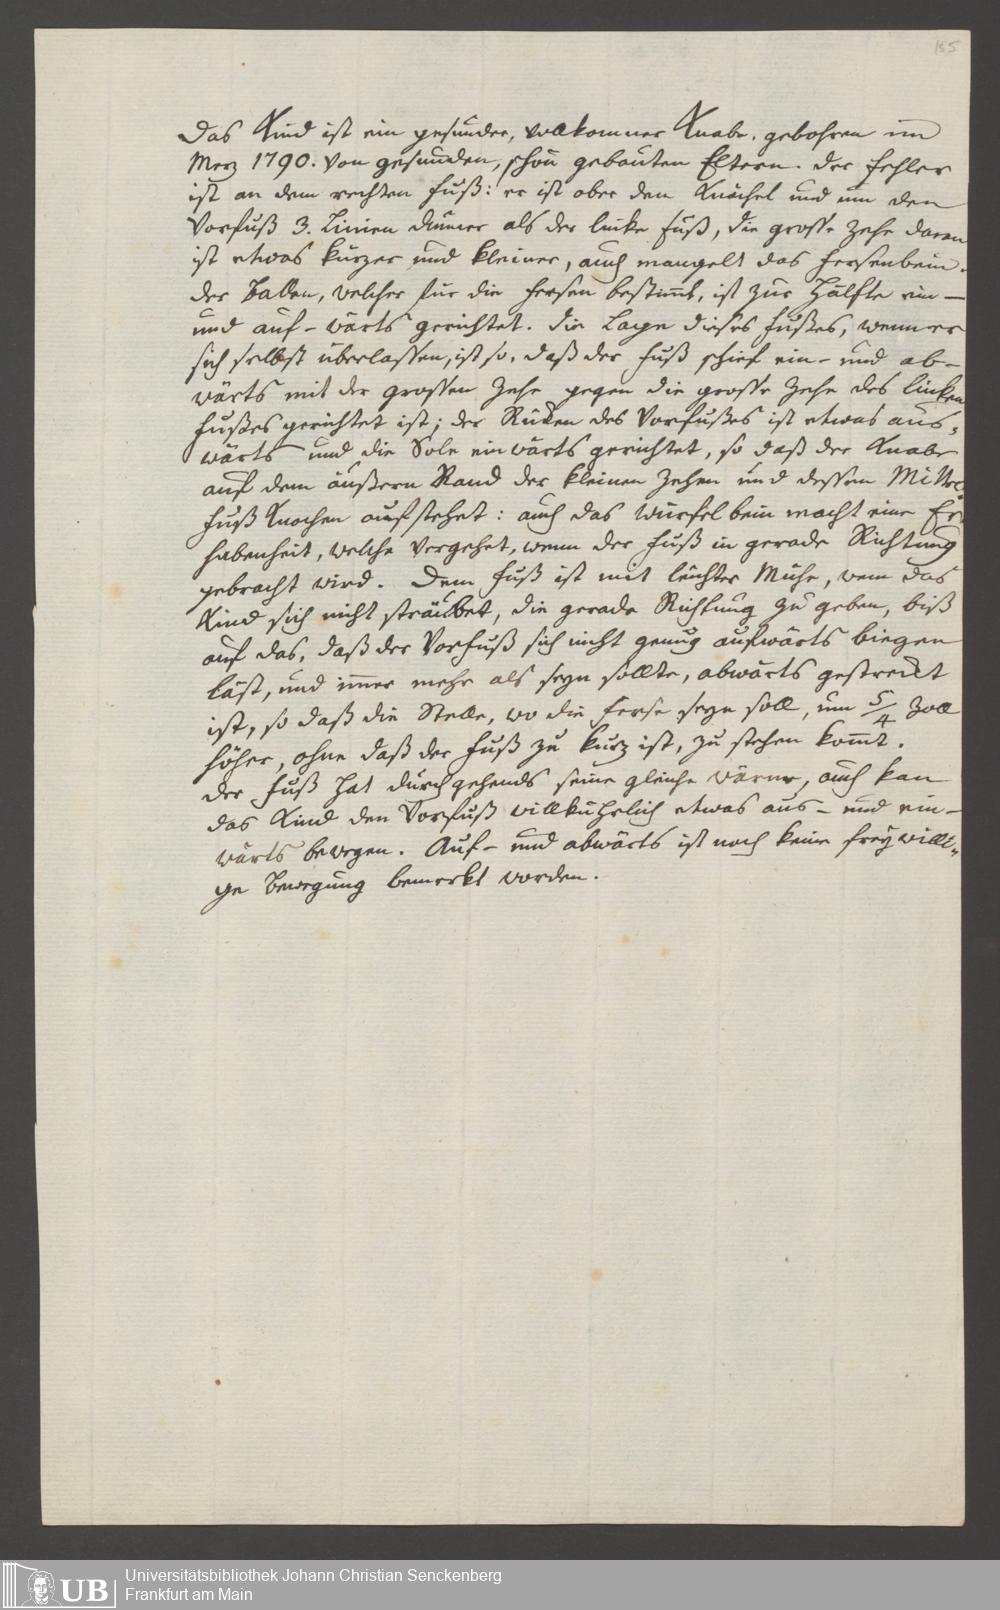 155
Das Kind ist ein gesunder, vollkomner Knabe, gebohren im
Merz 1790. von gesunden, schön gebauten Eltern. Der Fehler
ist an dem rechten Fuß: er ist ober dem Knöchel und um den
Vorfuß 3. Linien dünner als der linke Fuß, die grosse Zehe daran
ist etwas kürzer und kleiner, auch mangelt das Fersenbein.
der Ballen, welcher für die Fersen bestimt, ist zur Hälfte ein-
und auf-wärts gerichtet. Die Lage dieses Fußes, wenn er
sich selbst überlassen, ist so, daß der Fuß schief ein- und ab-
wärts mit der grossen Zehe gegen die grosse Zehe des linken
Fußes gerichtet ist; der Rüken des Vorfußes ist etwas aus-
wärts und die Sole einwärts gerichtet, so daß der Knabe
auf dem äußern Rand der kleinen Zehen und dessen Mittel-
fuß Knochen aufstehet: auch das Würfelbein macht eine Er-
habenheit, welche vergehet, wenn der Fuß in gerade Richtung
gebracht wird. Dem Fuß ist mit leichter Mühe, wenn das
Kind sich nicht sträubet, die gerade Richtung zu geben, biß
auf das, daß der Vorfuß sich nicht genug aufwärts biegen
läst, und immer mehr als seyn sollte, abwärts gestrekt
ist, so daß die Stelle, wo die Ferse seyn soll, um 5/4 Zoll
höher, ohne daß der Fuß zu kurz ist, zu stehen komt.
der Fuß hat durchgehends seine gleiche Wärme, auch kan
das Kind den Vorfuß willkührlich etwas aus- und ein-
wärts bewegen. Auf- und abwärts ist noch keine freywilli-
ge Bewegung bemerkt worden.
UB
Universitätsbibliothek Johann Christian Senckenberg
Frankfurt am Main